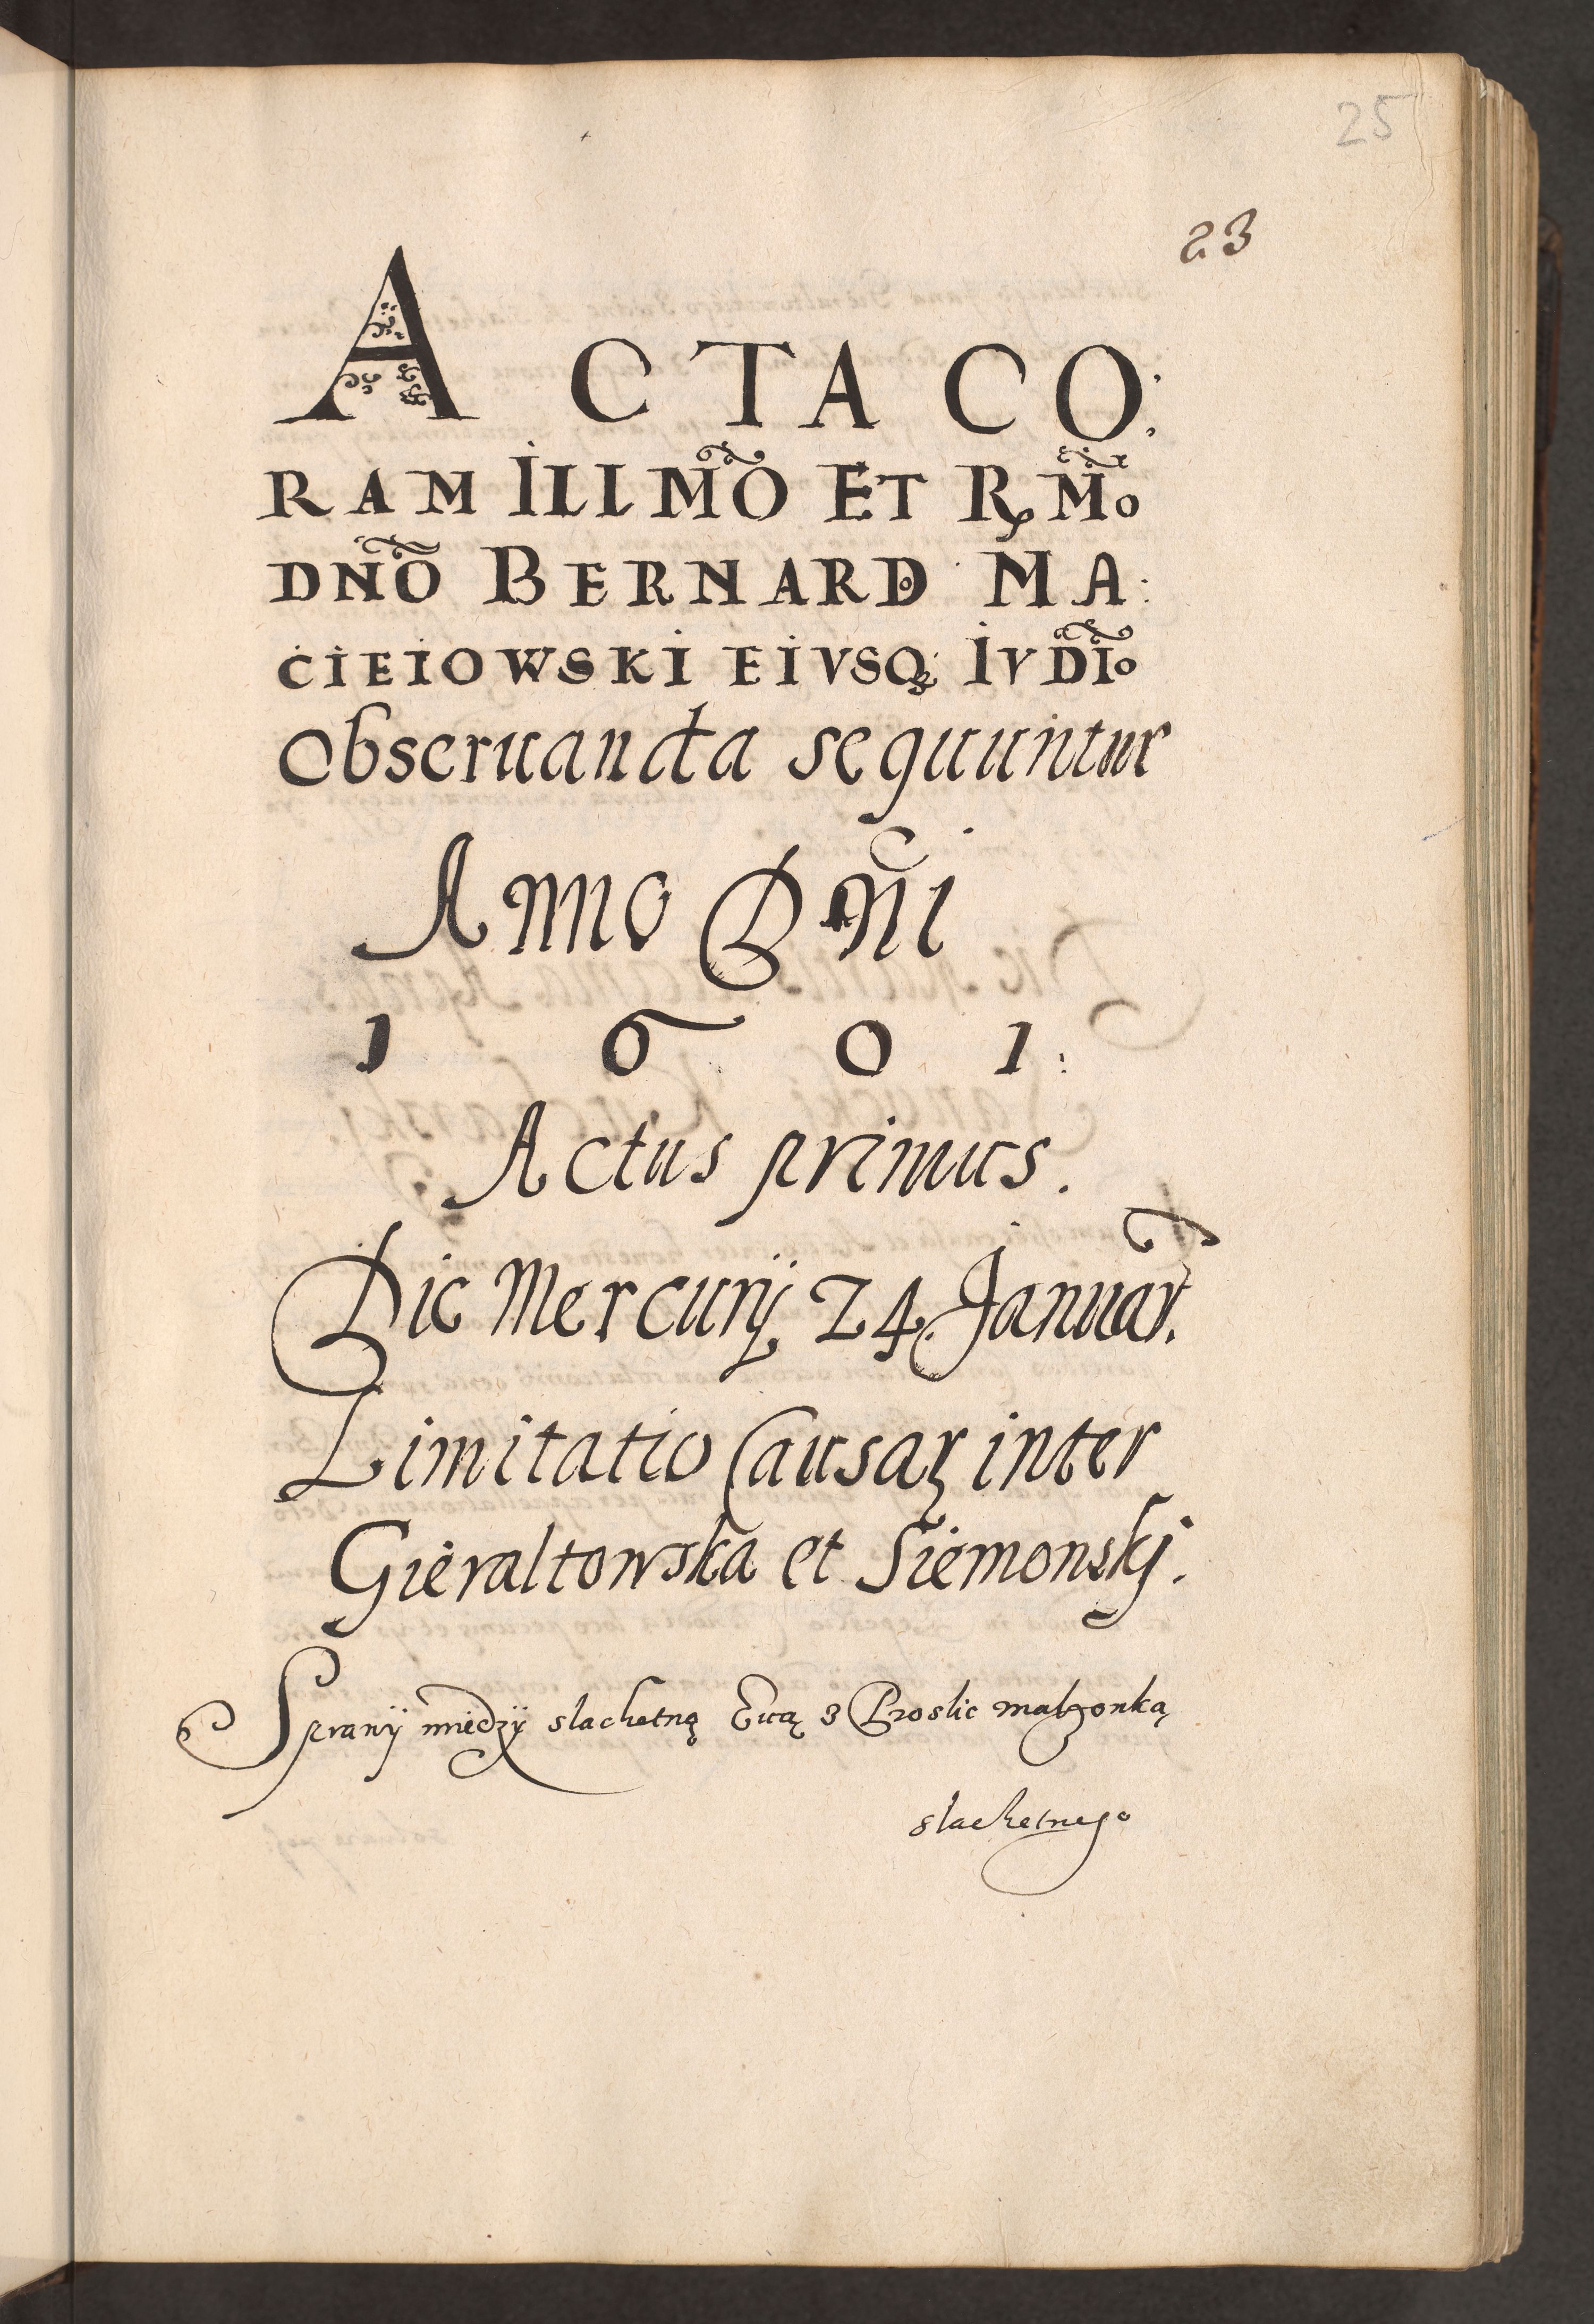 25
23
ACTA CO:
RAM ILLM̃O ET R̃M̃o
DÑO BERNARDo MA:
CIEIOWSKI EIVSQꝫ IVDĨo
Obseruanda sequuntur
Anno Dñi
1601:
Actus primus.
Die Mercurij 24 Januar̃.
Limitatio Causaꝝ inter
Gieraltowska et Siemonskj.
Sprawÿ miedzÿ slachetną Ewą z Przoslic malzonką
slachetnego